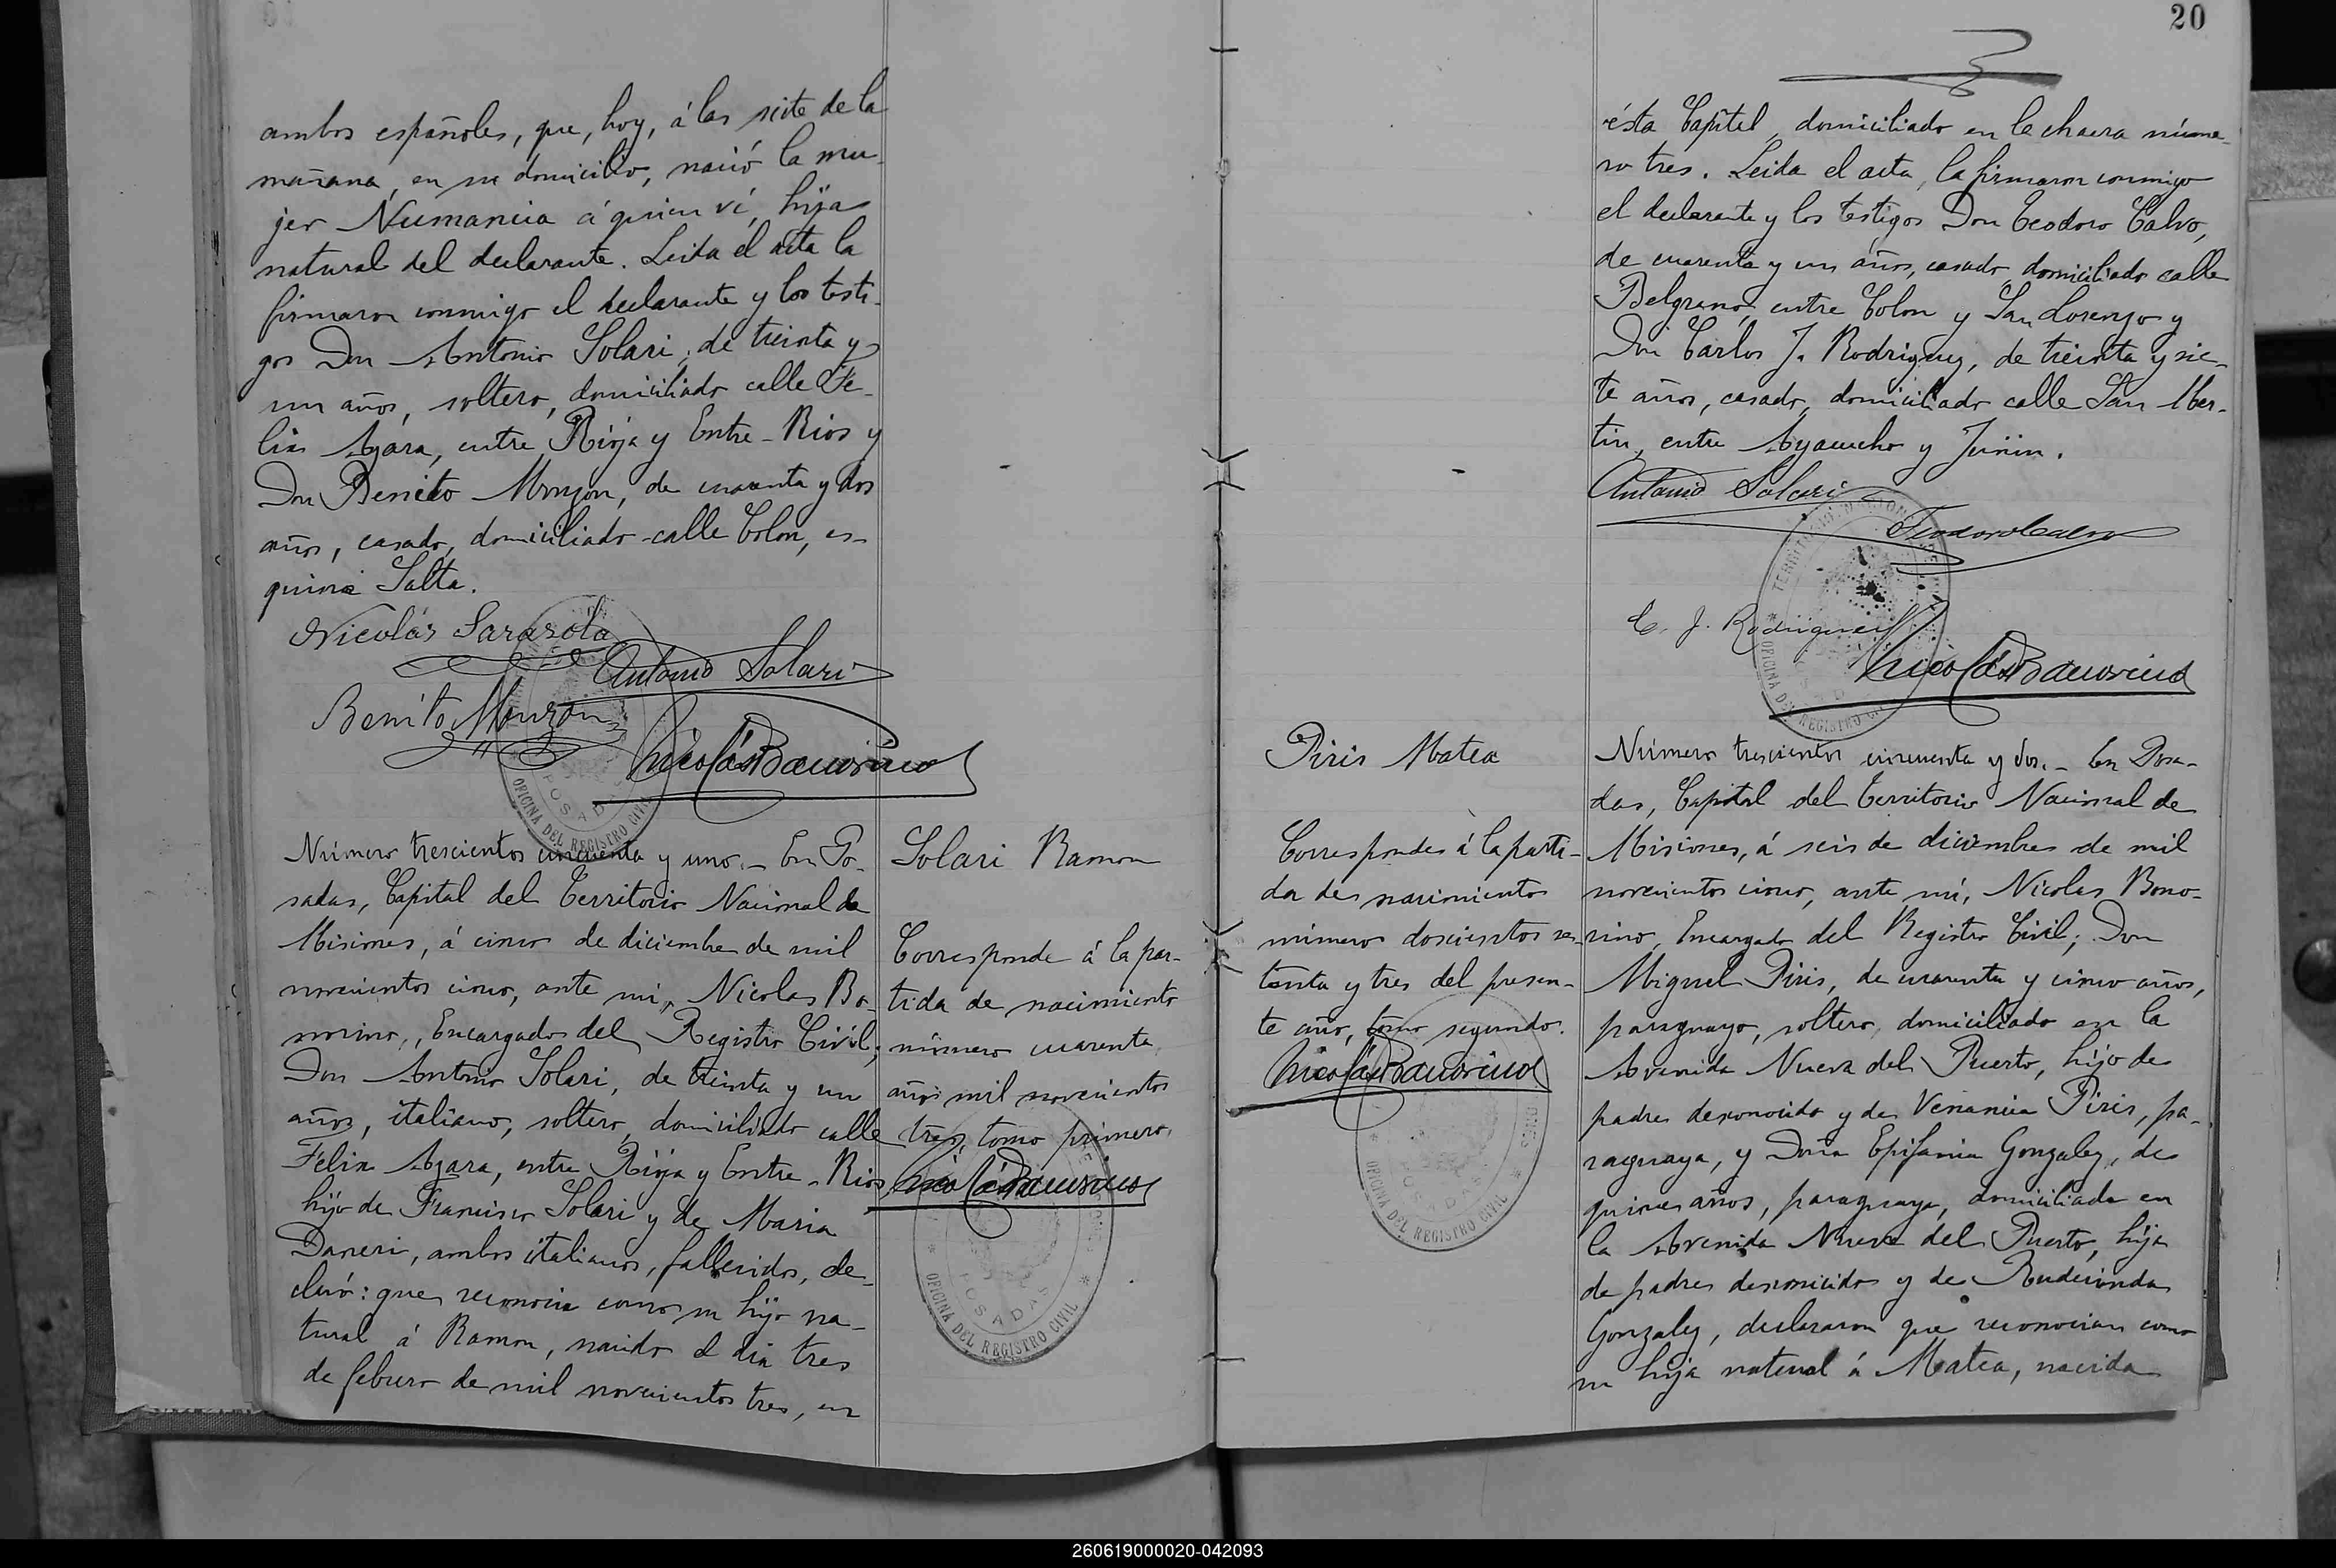 ambos españoles, que, hoy, á las siete de la
mañana, en su domicilio, nació la mu-
jer Numancia á quien ví, hija
natural del declarante. Leida el acta la
firmaron conmigo el declarante y los testi-
gos Don Antonio Solari, de treinta y
un años, soltero, domiciliado calle Fe-
lix Azara, entre Rioja y Entre-Rios y
Don Benito Monzon, de cuarenta y dos
años, casado, domiciliado calle Colon, es-
quina Salta.
Nicolás Sarasola
Antonio Solari
Benito Monzon
Nicolás Bonorino
POSADAS
OFICINA DEL REGISTRO CIVIL
Solari Ramon
Corresponde á la par-
tida de nacimiento
número cuarenta
año mil novecientos
tres, tomo primero.
Nicolás Bonorino
POSADAS
OFICINA DEL REGISTRO CIVIL
Número trescientos cincuenta y uno.- En Po-
sadas, Capital del Territorio Nacional de
Misiones, á cinco de diciembre de mil
novecientos cinco, ante mí, Nicolas Bo-
norino, Encargado del Registro Civil;
Don Antonio Solari, de treinta y un
años, italiano, soltero, domiciliado calle
Felix Azara, entre Rioja y Entre-Rios
hijo de Francisco Solari y de Maria
Daneri, ambos italianos, fallecidos, de-
claró: que reconocia como su hijo na-
tural á Ramon, nacido el dia tres
de febrero de mil novecientos tres, en
20
ésta Capital, domiciliado en la chacra núme-
ro tres. Leida el acta, la firmaron conmigo
el declarante y los testigos Don Teodoro Calvo,
de cuarenta y un años, casado, domiciliado calle
Belgrano, entre Colon y San Lorenzo y
Don Carlos J. Rodriguez, de treinta y sie-
te años, casado, domiciliado calle San Mar-
tin, entre Ayacucho y Junin.
Antonio Solari
Teodoro Calvo
C. J. Rodriguez
Nicolás Bonorino
OFICINA DEL REGISTRO CIVIL
Piris Matea
Corresponde á la parti-
da de nacimiento
número doscientos se-
tenta y tres del presen-
te año, tomo segundo.
Nicolás Bonorino
POSADAS
OFICINA DEL REGISTRO CIVIL
Número trescientos cincuenta y dos.- En Posa-
das, Capital del Territorio Nacional de
Misiones, á seis de diciembre de mil
novecientos cinco, ante mí, Nicolas Bono-
rino, Encargado del Registro Civil; Don
Miguel Piris, de cuarenta y cinco años,
paraguayo, soltero, domiciliado en la
Avenida Nueva del Puerto, hijo de
padre desconocido y de Venancia Piris, pa-
raguaya, y Doña Epifania Gonzalez, de
quince años, paraguaya, domiciliada en
la Avenida Nueva del Puerto, hija
de padre desconocido y de Rudecinda
Gonzalez, declararon que reconocian como
su hija natural á Matea, nacida
260619000020-042093